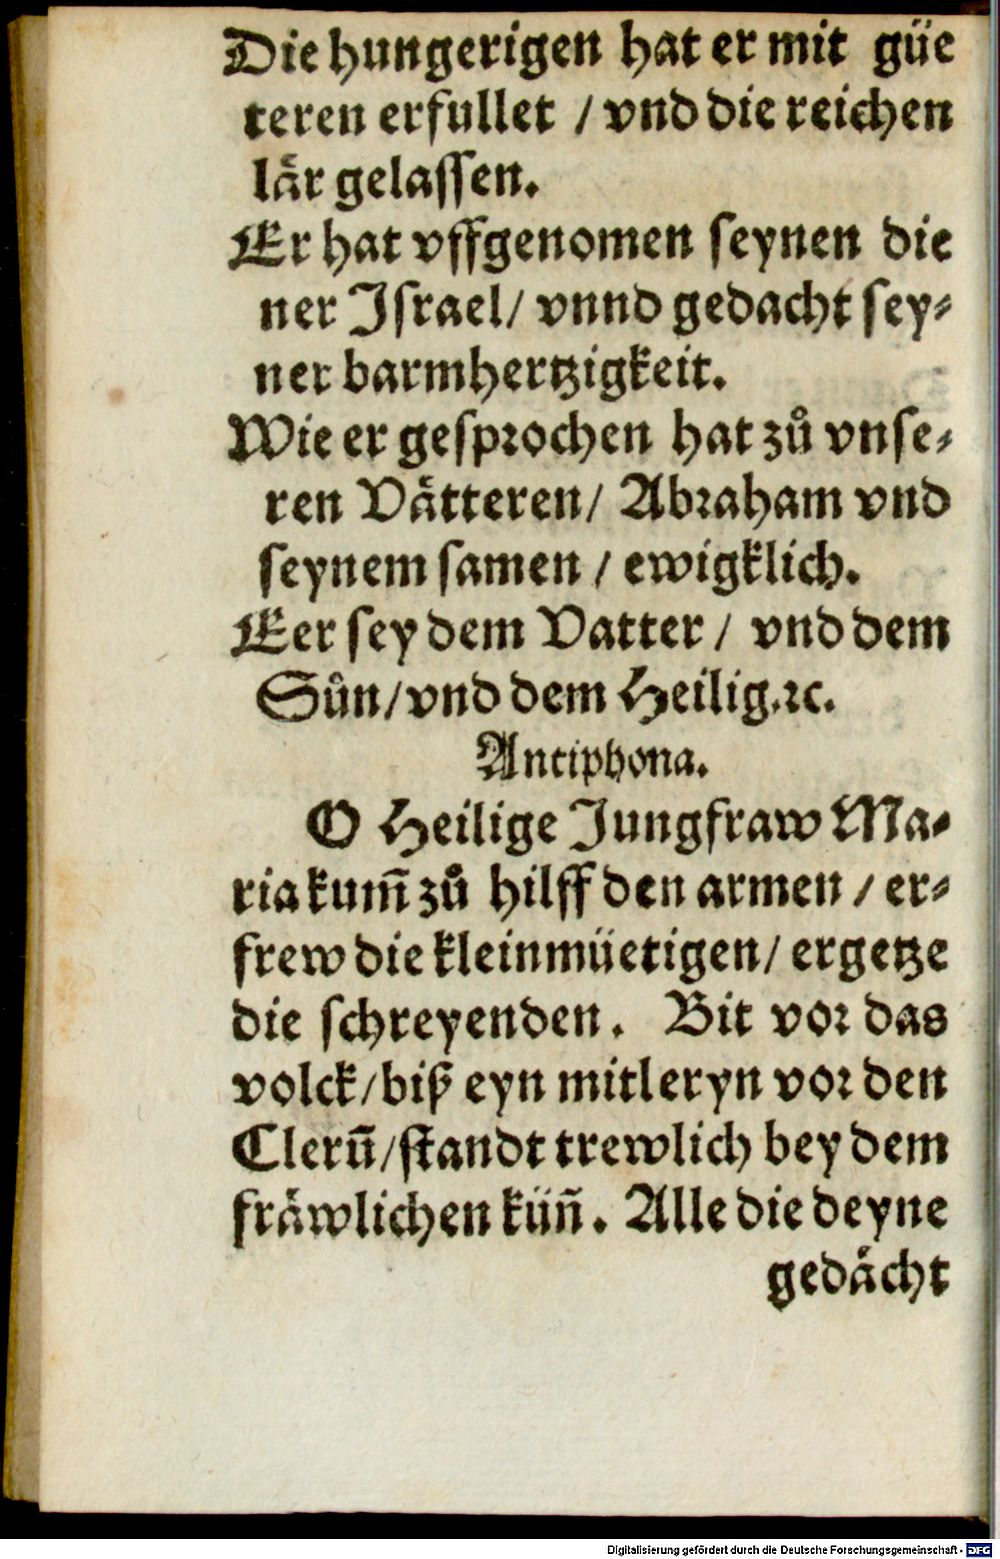 Die hungerigen hat er mit güe
teren erfullet / vnd die reichen
lår gelaſſen.
Er hat vffgenomen ſeynen die
ner Iſrael/ vnnd gedacht ſey⸗
ner barmhertzigkeit.
Wie er geſpꝛochen hat zů vnſe⸗
ren Våtteren/ Abꝛaham vnd
ſeynem ſamen / ewigklich.
Eer ſey dem Vatter / vnd dem
Sůn/vnd dem Heilig.ꝛc.
Antiphona.
O Heilige Jungfraw Ma⸗
ria kum̃ zů hilff den armen / er⸗
frew die kleinmüetigen/ ergetze
die ſchreyenden. Bit voꝛ das
volck/biß eyn mitleryn voꝛ den
Clerũ/ſtandt trewlich bey dem
fråwlichen küñ. Alle die deyne
gedåcht
Digitalisierung gefördert durch die Deutsche Forschungsgemeinschaft - DFG